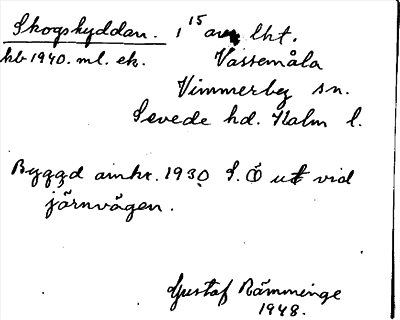 Skogshyddan. 1 15 av lht.
kb 1940. ml. ek. Vassemåla
Vimmerby sn.
Sevede hd. Kalm l.
Byggd omkr. 1930 S.Ö ut vid
järnvägen.
Gustaf Rämminge
1948.